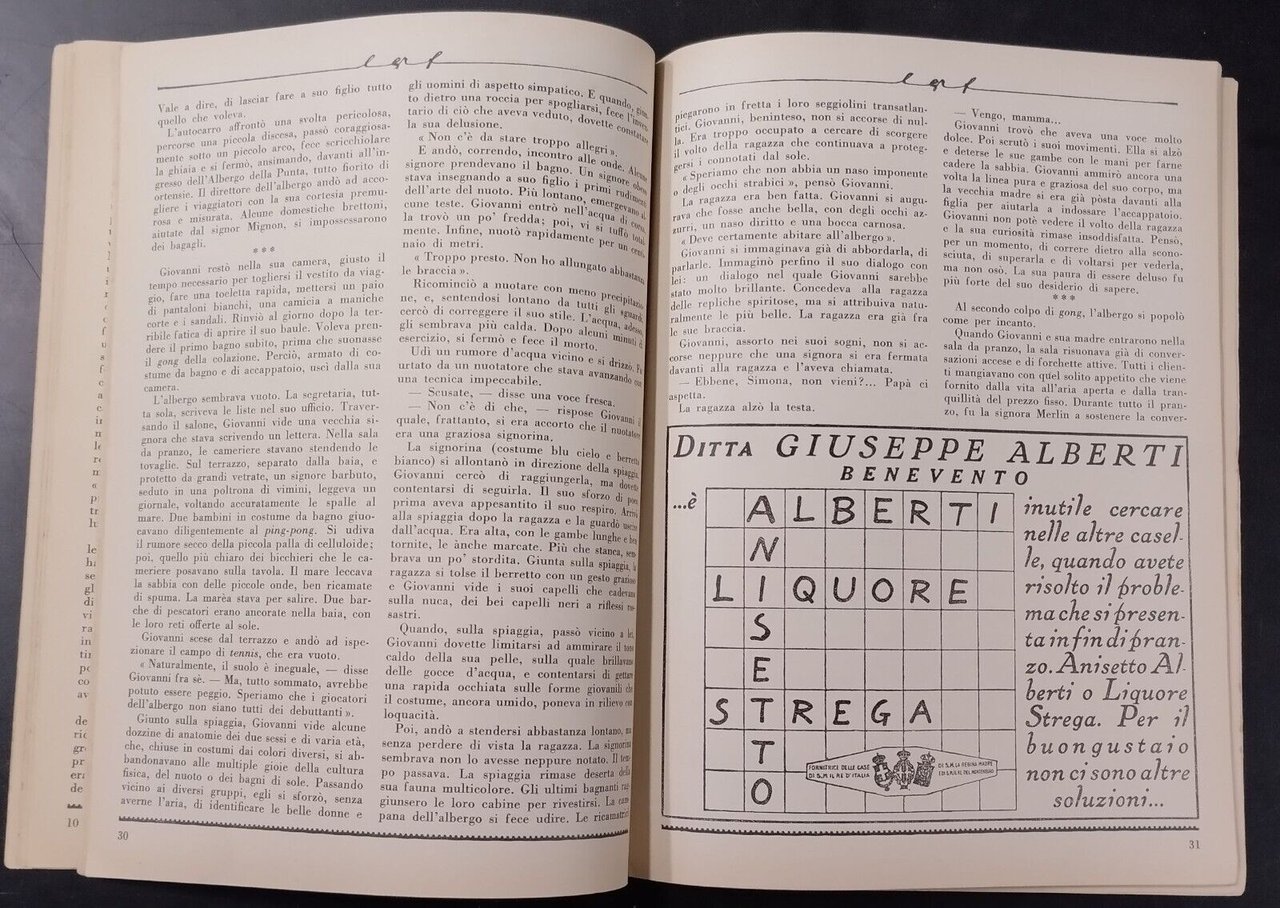 Vale a dire, di lasciar fare a suo figlio tutto
quello che voleva.
L'autocarro affrontò una svolta pericolosa,
percorse una piccola discesa, passò coraggiosa-
mente sotto un piccolo arco, fece scricchiolare
la ghiaia e si fermò, ansimando, davanti all'in-
gresso dell'Albergo della Punta, tutto fiorito di
ortensie. Il direttore dell'albergo andò ad acco-
gliere i viaggiatori con la sua cortesia premu-
rosa e misurata. Alcune domestiche brettoni,
aiutate dal signor Mignon, si impossessarono
dei bagagli.
* * *
Giovanni restò nella sua camera, giusto il
tempo necessario per togliersi il vestito da viag-
gio, fare una toeletta rapida, mettersi un paio
di pantaloni bianchi, una camicia a maniche
corte e i sandali. Rinviò al giorno dopo la ter-
ribile fatica di aprire il suo baule. Voleva pren-
dere il primo bagno subito, prima che suonasse
il gong della colazione. Perciò, armato di co-
stume da bagno e di accappatoio, uscì dalla sua
camera.
L'albergo sembrava vuoto. La segretaria, tut-
ta sola, scriveva le liste nel suo ufficio. Traver-
sando il salone, Giovanni vide una vecchia si-
gnora che stava scrivendo un lettera. Nella sala
da pranzo, le cameriere stavano stendendo le
tovaglie. Sul terrazzo, separato dalla baia, e
protetto da grandi vetrate, un signore barbuto,
seduto in una poltrona di vimini, leggeva un
giornale, voltando accuratamente le spalle al
mare. Due bambini in costume da bagno giuo-
cavano diligentemente al ping-pong. Si udiva
il rumore secco della piccola palla di celluloide;
poi, quello più chiaro dei bicchieri che le ca-
meriere posavano sulla tavola. Il mare leccava
la sabbia con delle piccole onde, ben ricamate
di spuma. La marèa stava per salire. Due bar-
che di pescatori erano ancorate nella baia, con
le loro reti offerte al sole.
Giovanni scese dal terrazzo e andò ad ispe-
zionare il campo di tennis, che era vuoto.
« Naturalmente, il suolo è ineguale, — disse
Giovanni fra sè. — Ma, tutto sommato, avrebbe
potuto essere peggio. Speriamo che i giocatori
dell'albergo non siano tutti dei debuttanti ».
Giunto sulla spiaggia, Giovanni vide alcune
dozzine di anatomie dei due sessi e di varia età,
che, chiuse in costumi dai colori diversi, si ab-
bandonavano alle multiple gioie della cultura
fisica, del nuoto o dei bagni di sole. Passando
vicino ai diversi gruppi, egli si sforzò, senza
averne l'aria, di identificare le belle donne e
30
gli uomini di aspetto simpatico. E quando, giun-
to dietro una roccia per spogliarsi, fece l'inven-
tario di ciò che aveva veduto, dovette constatare
la sua delusione.
« Non c'è da stare troppo allegri ».
E andò, correndo, incontro alle onde. Alcune
signore prendevano il bagno. Un signore obeso
stava insegnando a suo figlio i primi rudimenti
dell'arte del nuoto. Più lontano, emergevano al-
cune teste. Giovanni entrò nell'acqua di corsa,
la trovò un po' fredda; poi, vi si tuffò total-
mente. Infine, nuotò rapidamente per un centi-
naio di metri.
« Troppo presto. Non ho allungato abbastanza
le braccia ».
Ricominciò a nuotare con meno precipitazio-
ne, e, sentendosi lontano da tutti gli sguardi,
cercò di correggere il suo stile. L'acqua, adesso,
gli sembrava più calda. Dopo alcuni minuti di
esercizio, si fermò e fece il morto.
Udì un rumore d'acqua vicino e si drizzò. Fu
urtato da un nuotatore che stava avanzando con
una tecnica impeccabile.
— Scusate, — disse una voce fresca.
— Non c'è di che, — rispose Giovanni il
quale, frattanto, si era accorto che il nuotatore
era una graziosa signorina.
La signorina (costume blu cielo e berretto
bianco) si allontanò in direzione della spiaggia.
Giovanni cercò di raggiungerla, ma dovette
contentarsi di seguirla. Il suo sforzo di poco
prima aveva appesantito il suo respiro. Arrivò
alla spiaggia dopo la ragazza e la guardò uscire
dall'acqua. Era alta, con le gambe lunghe e ben
tornite, le ànche marcate. Più che stanca, sem-
brava un po' stordita. Giunta sulla spiaggia, la
ragazza si tolse il berretto con un gesto grazioso
e Giovanni vide i suoi capelli che cadevano
sulla nuca, dei bei capelli neri a riflessi ros-
sastri.
Quando, sulla spiaggia, passò vicino a lei,
Giovanni dovette limitarsi ad ammirare il tono
caldo della sua pelle, sulla quale brillavano
delle gocce d'acqua, e contentarsi di gettare
una rapida occhiata sulle forme giovanili che
il costume, ancora umido, poneva in rilievo con
loquacità.
Poi, andò a stendersi abbastanza lontano, ma
senza perdere di vista la ragazza. La signorina
sembrava non lo avesse neppure notato. Il tem-
po passava. La spiaggia rimase deserta della
sua fauna multicolore. Gli ultimi bagnanti rag-
giunsero le loro cabine per rivestirsi. La cam-
pana dell'albergo si fece udire. Le ricamatrici
piegarono in fretta i loro seggiolini transatlan-
tici. Giovanni, beninteso, non si accorse di nul-
la. Era troppo occupato a cercare di scorgere
il volto della ragazza che continuava a proteg-
gersi i connotati dal sole.
« Speriamo che non abbia un naso imponente
o degli occhi strabici », pensò Giovanni.
La ragazza era ben fatta. Giovanni si augu-
rava che fosse anche bella, con degli occhi az-
zurri, un naso diritto e una bocca carnosa.
« Deve certamente abitare all'albergo ».
Giovanni si immaginava già di abbordarla, di
parlarle. Immaginò perfino il suo dialogo con
lei: un dialogo nel quale Giovanni sarebbe
stato molto brillante. Concedeva alla ragazza
delle repliche spiritose, ma si attribuiva natu-
ralmente le più belle. La ragazza era già fra
le sue braccia.
Giovanni, assorto nei suoi sogni, non si ac-
corse neppure che una signora si era fermata
davanti alla ragazza e l'aveva chiamata.
— Ebbene, Simona, non vieni?... Papà ci
aspetta.
La ragazza alzò la testa.
— Vengo, mamma...
Giovanni trovò che aveva una voce molto
dolce. Poi scrutò i suoi movimenti. Ella si alzò
e deterse le sue gambe con le mani per farne
cadere la sabbia. Giovanni ammirò ancora una
volta la linea pura e graziosa del suo corpo, ma
la vecchia madre si era già pòsta davanti alla
figlia per aiutarla a indossare l'accappatoio.
Giovanni non potè vedere il volto della ragazza
e la sua curiosità rimase insoddisfatta. Pensò,
per un momento, di correre dietro alla scono-
sciuta, di superarla e di voltarsi per vederla,
ma non osò. La sua paura di essere deluso fu
più forte del suo desiderio di sapere.
* * *
Al secondo colpo di gong, l'albergo si popolò
come per incanto.
Quando Giovanni e sua madre entrarono nella
sala da pranzo, la sala risuonava già di conver-
sazioni accese e di forchette attive. Tutti i clien-
ti mangiavano con quel solito appetito che viene
fornito dalla vita all'aria aperta e dalla tran-
quillità del prezzo fisso. Durante tutto il pran-
zo, fu la signora Merlin a sostenere la conver-
DITTA GIUSEPPE ALBERTI
BENEVENTO
...è
ALBERTI
ANISETTO
LIQUORE
STREGA
FORNITRICE DELLE CASE
DI S.M. IL RE D'ITALIA
DI S.M. LA REGINA MADRE
inutile cercare
nelle altre casel-
le, quando avete
risolto il proble-
ma che si presen-
ta in fin di pran-
zo. Anisetto Al-
berti o Liquore
Strega. Per il
buongustaio
non ci sono altre
soluzioni...
31
10